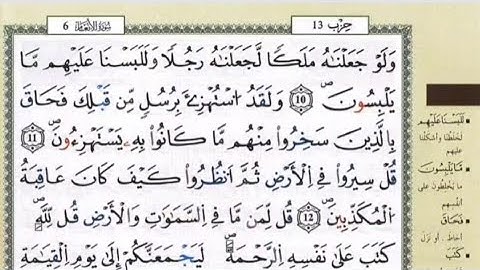 حزب 13
سورة الأنعام 6
وَلَوْ جَعَلْنَٰهُ مَلَكٗا لَّجَعَلْنَٰهُ رَجُلٗا وَلَلَبَسْنَا عَلَيْهِم مَّا
يَلْبِسُونَۖ 10 وَلَقَدُ اُ۟سْتُهْزِئَ بِرُسُلٖ مِّن قَبْلِكَ فَحَاقَ
بِالذِينَ سَخِرُواْ مِنْهُم مَّا كَانُواْ بِهِۦ يَسْتَهْزِءُونَۖ 11
قُلْ سِيرُواْ فِي اِ۬لْأَرْضِ ثُمَّ اَ۟نظُرُواْ كَيْفَ كَانَ عَٰقِبَةُ
اُ۬لْمُكَذِّبِينَۖ 12 قُل لِّمَن مَّا فِي اِ۬لسَّمَٰوَٰتِ وَالْأَرْضِ قُل لِّلهِۖ
كَتَبَ عَلَىٰ نَفْسِهِ اِ۬لرَّحْمَةَۖ لَيَجْمَعَنَّكُمْ إِلَىٰ يَوْمِ اِ۬لْقِيَٰمَةِ
لَلَبَسْنَا عَلَيْهِم
لخلطنا وأشكلنا
عليهم
مَّا يَلْبِسُونَ
ما يخلطون على
أنفسهم
فَحَاقَ
أحاط، أو نزل
كَتَبَ